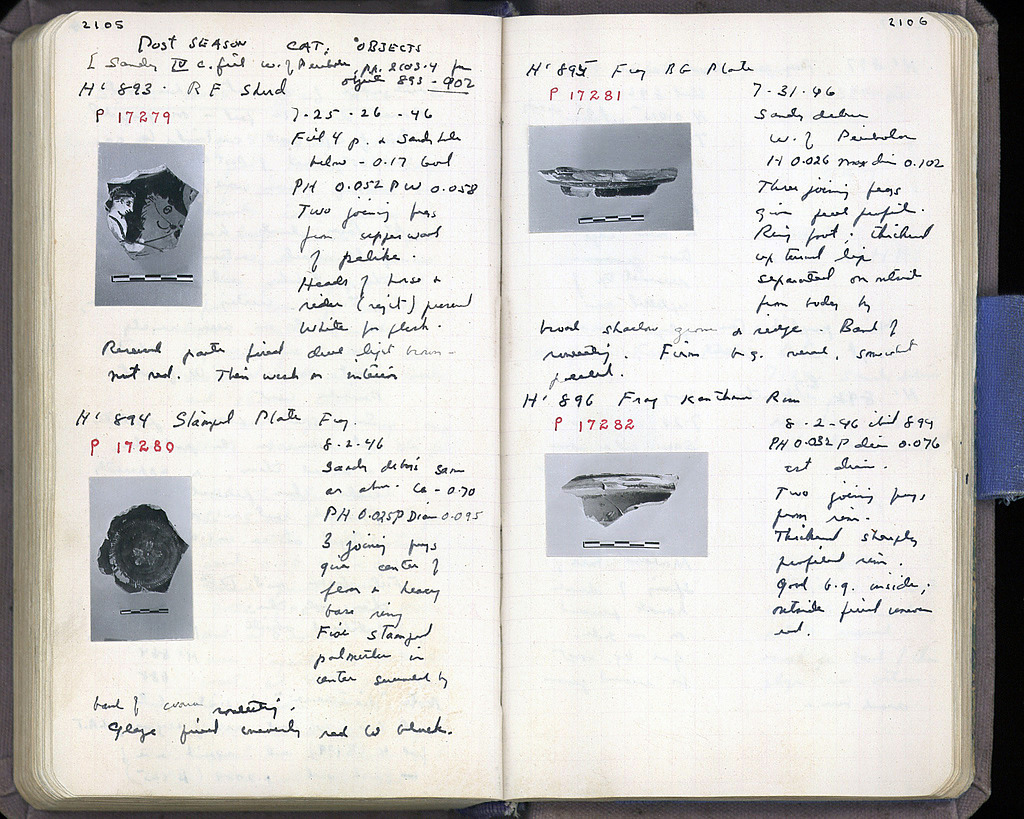 2105
Post SEASON CAT: OBJECTS
[ Sandy IV c. fill w. of Peribolos, pp. 2103-4 for
objects 893 - 902
H' 893 · RF Sherd
P 17279
7-25-26-46
Fill 4 p. & Sandy
below - 0.17
PH 0.052 PW 0.058
Two joining frags
from upper wall
of pelike.
Heads of horse &
rider (right) preserved
White for flesh.
Reserved parts fired dull light brown -
not red. Thin wash on interior
H' 894 Stamped Plate Frag.
P 17280
8-2-46
Sandy debris same
as above. Ca - 0.70
PH 0.025 P Diam 0.095
3 joining frags
give center of
floor & heavy
base ring
Five stamped
palmettes in
center surrounded by
band of rouletting.
Glaze fired unevenly red to black.
2106
H' 895 Frag BG Plate
P 17281
7-31-46
Sandy debris
w. of Peribolos
H 0.026 max dim 0.102
Three joining frags
give full profile.
Ring foot; thickened
external lip
separated on outside
from body by
broad shallow groove & ridge. Band of
rouletting. Firm b.g. , somewhat
peeled.
H' 896 Frag Kantharos Rim
P 17282
8-2-46 ibid 894
PH 0.032 P diam 0.076
est diam.
Two joining frags
from rim.
Thickened sharply
profiled rim.
Good b.g. inside;
outside fired uneven
red.